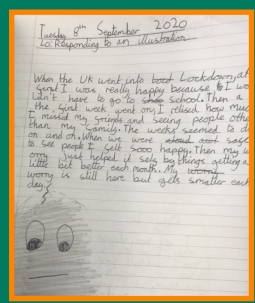 Tuesday 8th September 2020
Lo: Responding to an illustration
When the UK went into Lockdown, at
first I was really happy because I wo
uldn't have to go to school. Then a
the first week went on, I relised how much
I missed my friends and seeing people othe
than my family. The weeks seemed to d
on and on. When we were safe
to see people I felt sooo happy. Then my w
orry just helped it self by things getting a
little bit better each month. My
worry is still here but gets smaller each
day.